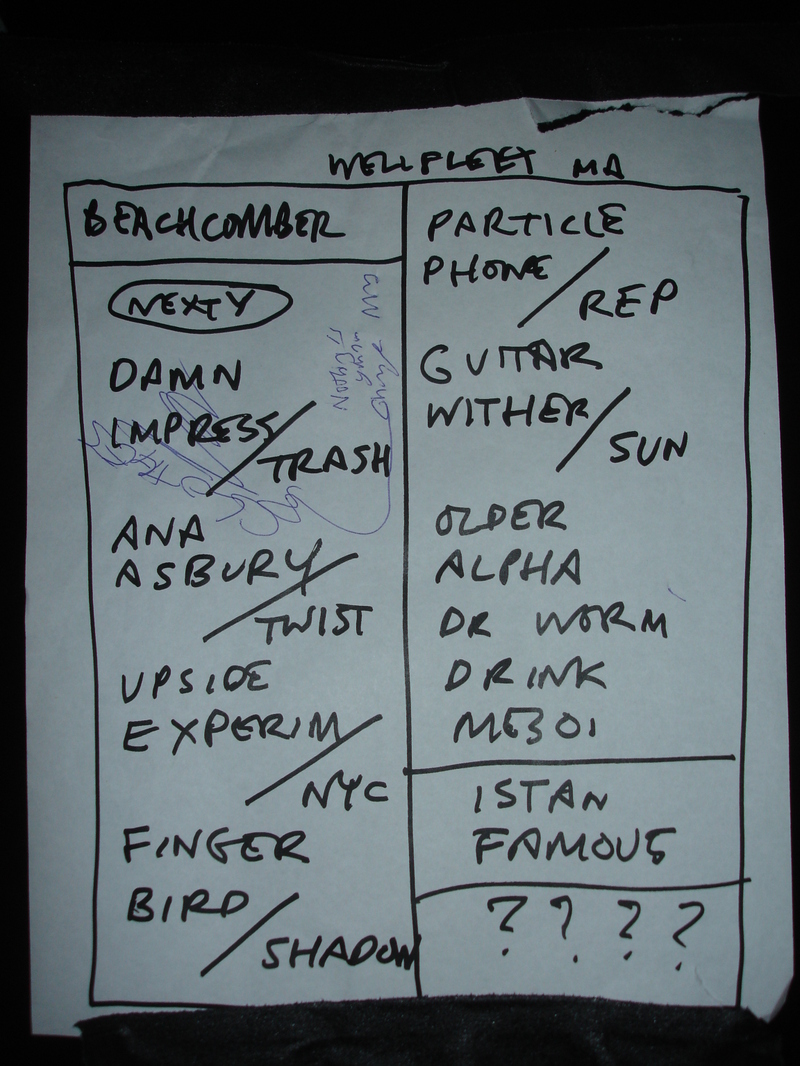 WELLFLEET MA
BEACHCOMBER
NEXTY
DAMN
IMPRESS/
TRASH
ANA
ASBURY/
TWIST
UPSIDE
EXPERIM/
NYC
FINGER
BIRD/
SHADOW
PARTICLE
PHONE/
REP
GUITAR
WITHER/
SUN
OLDER
ALPHA
DR WORM
DRINK
ME301
ISTAN
FAMOUS
? ? ? ?